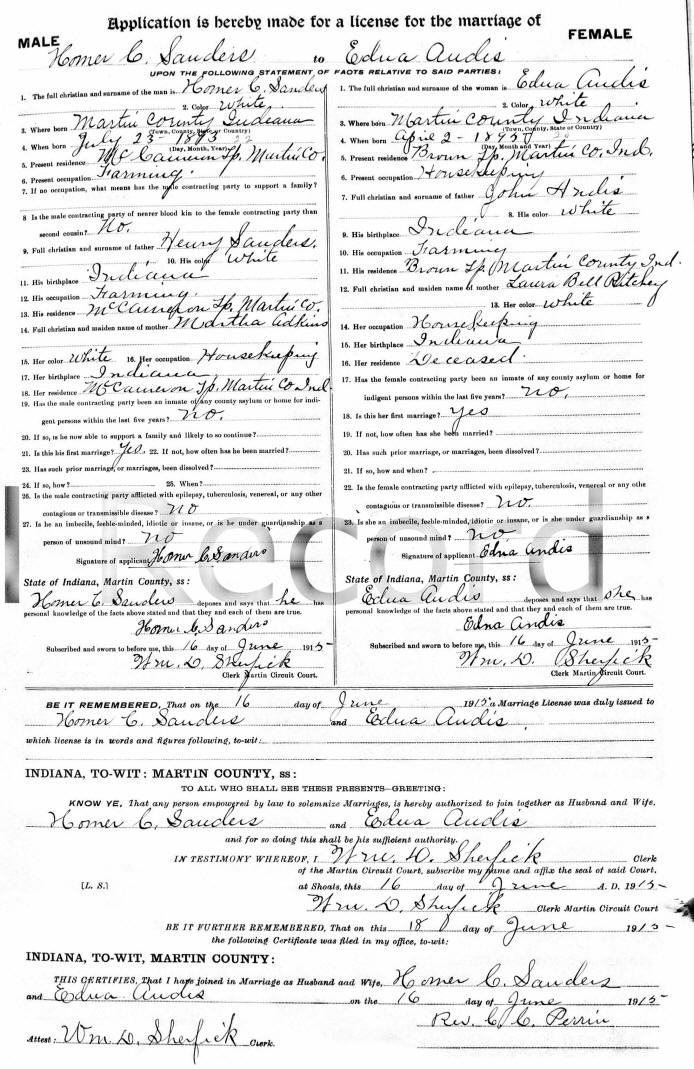 Application is hereby made for a license for the marriage of
MALE FEMALE
Homer C. Sanders to Edna Andis
UPON THE FOLLOWING STATEMENT OF FACTS RELATIVE TO SAID PARTIES:
1. The full christian and surname of the man is Homer C. Sanders
2. Color White
3. Where born Martin County Indiana
(Town, County, State or Country)
4. When born July 23 - 1893 22
(Day, Month, Year)
5. Present residence McCameron Tp. Martin Co.
6. Present occupation Farming.
7. If no occupation, what means has the male contracting party to support a family?
8 Is the male contracting party of nearer blood kin to the female contracting party than
second cousin? No.
9. Full christian and surname of father Henry Sanders.
10. His color White
11. His birthplace Indiana
12. His occupation Farming.
13. His residence McCameron Tp. Martin Co.
14. Full christian and maiden name of mother Martha Adkins
15. Her color White 16. Her occupation Housekeeping
17. Her birthplace Indiana
18. Her residence McCameron Tp. Martin Co Ind.
19. Has the male contracting party been an inmate of any county asylum or home for indi-
gent persons within the last five years? no.
20. If so, is he now able to support a family and likely to so continue?
21. Is this his first marriage? Yes. 22. If not, how often has he been married?
23. Has such prior marriage, or marriages, been dissolved?
24. If so, how? 25. When?
26. Is the male contracting party afflicted with epilepsy, tuberculosis, venereal, or any other
contagious or transmissible disease? no
27. Is he an imbecile, feeble-minded, idiotic or insane, or is he under guardianship as a
person of unsound mind? no
Signature of applicant Homer C Sanders
State of Indiana, Martin County, ss:
Homer C. Sanders deposes and says that he has
personal knowledge of the facts above stated and that they and each of them are true.
Homer C. Sanders
Subscribed and sworn to before me, this 16 day of June 1915-
Wm. D. Sherfick
Clerk Martin Circuit Court.
1. The full christian and surname of the woman is Edna Andis
2. Color White
3. Where born Martin County Indiana
(Town, County, State or Country)
4. When born April 2 - 1895 20
(Day, Month and Year)
5. Present residence Brown Tp. Martin Co. Ind.
6. Present occupation Housekeeping
7. Full christian and surname of father John Andis
8. His color White
9. His birthplace Indiana
10. His occupation Farming
11. His residence Brown Tp. Martin County Ind.
12. Full christian and maiden name of mother Laura Bell Ritchey
13. Her color White
14. Her occupation Housekeeping
15. Her birthplace Indiana
16. Her residence Deceased.
17. Has the female contracting party been an inmate of any county asylum or home for
indigent persons within the last five years? no.
18. Is this her first marriage? Yes
19. If not, how often has she been married?
20. Has such prior marriage, or marriages, been dissolved?
21. If so, how and when?
22. Is the female contracting party afflicted with epilepsy, tuberculosis, venereal, or any other
contagious or transmissible disease? no.
23. Is she an imbecile, feeble-minded, idiotic or insane, or is she under guardianship as a
person of unsound mind? no
Signature of applicant Edna Andis
State of Indiana, Martin County, ss:
Edna Andis deposes and says that she has
personal knowledge of the facts above stated and that they and each of them are true.
Edna Andis
Subscribed and sworn to before me, this 16 day of June 1915-
Wm. D. Sherfick
Clerk Martin Circuit Court.
Record
BE IT REMEMBERED, That on the 16 day of June 1915 a Marriage License was duly issued to
Homer C. Sanders and Edna Andis.
which license is in words and figures following, to-wit:
INDIANA, TO-WIT: MARTIN COUNTY, ss:
TO ALL WHO SHALL SEE THESE PRESENTS—GREETING:
KNOW YE, That any person empowered by law to solemnize Marriages, is hereby authorized to join together as Husband and Wife,
Homer C. Sanders and Edna Andis
and for so doing this shall be his sufficient authority.
IN TESTIMONY WHEREOF, I Wm. D. Sherfick Clerk
of the Martin Circuit Court, subscribe my name and affix the seal of said Court,
[L. S.] at Shoals, this 16 day of June A. D. 1915-
Wm. D. Sherfick Clerk Martin Circuit Court
BE IT FURTHER REMEMBERED, That on this 18 day of June 1915-
the following Certificate was filed in my office, to-wit:
INDIANA, TO-WIT, MARTIN COUNTY:
THIS CERTIFIES, That I have joined in Marriage as Husband and Wife, Homer C. Sanders
and Edna Andis on the 16 day of June 1915-
Rev. C. C. Perrin
Attest: Wm D. Sherfick Clerk.